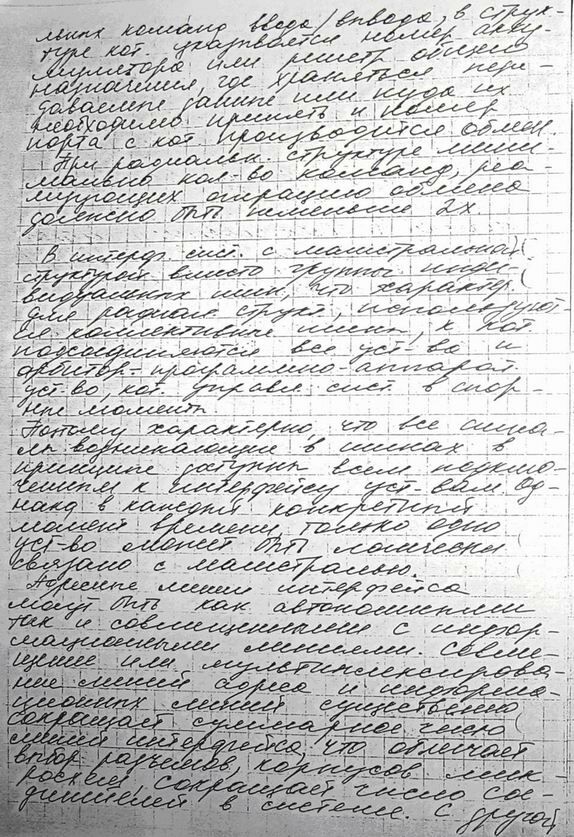 льних команд ввода/вывода, в струк-
туре кот. указывается номер акку-
мулятора или регистр общего
назначения, где храняться пере-
даваемые данные или куда их
необходимо принять и номер
порта с кот производится обмен.
При радиальн. структуре мини-
мально кол-во команд, реа-
лизующих операцию обмена
должно быть неменьше 2х
В интерф. сист. с магистральной
структурой вместо группы инди-
видуальных шин, что характер.
для радиал структ, используют-
ся коллективные шины, к кот
подсоединяются все уст-ва и
арбитр-программно-аппарат.
уст-во, кот. управл сист. в спор-
ные моменты.
Поэтому характерно, что все сигна-
лы возникающие в шинах в
принципе доступны всем подклю-
ченным к интерфейсу уст-вам Од-
накд в каждый конкретный
момент времени, только одно
уст-во может быть логически
связано с магистралью.
Адресные линии интерфейса
могут быть как автономными
так и совмещенными с инфор-
мационными линиями. Совме-
щение или мультиплексирова-
ние линий адреса и информа-
ционных линий существенно
сокращает суммарное число
линий интерфейса, что облегчает
выбор разъемов, корпусов мик-
росхем, сокращает число сое-
динителей в системе. С другой